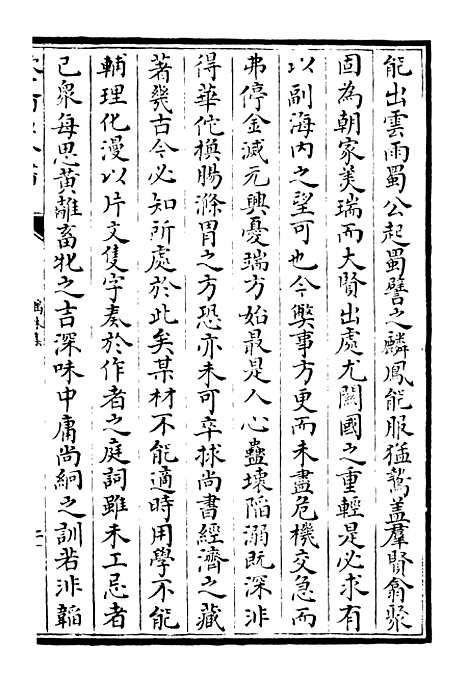 能出雲雨蜀公起蜀譬之麟鳳能服猛鷙盖羣賢翕聚
固為朝家美瑞而大賢出處尤關國之重輕是必求有
以副海内之望可也今獘事方更而未盡危機交急而
弗停金滅元興憂端方始最是人心蠱壊陷溺既深非
得華佗換腸滌胃之方恐亦未可卒捄尚書經濟之藏
著蔡古今必知所處於此矣某材不能適時用學不能
輔理化漫以片文隻字奏於作者之庭詞雖未工忌者
已衆每思黄離畜牝之吉深味中庸尚絅之訓若非韜